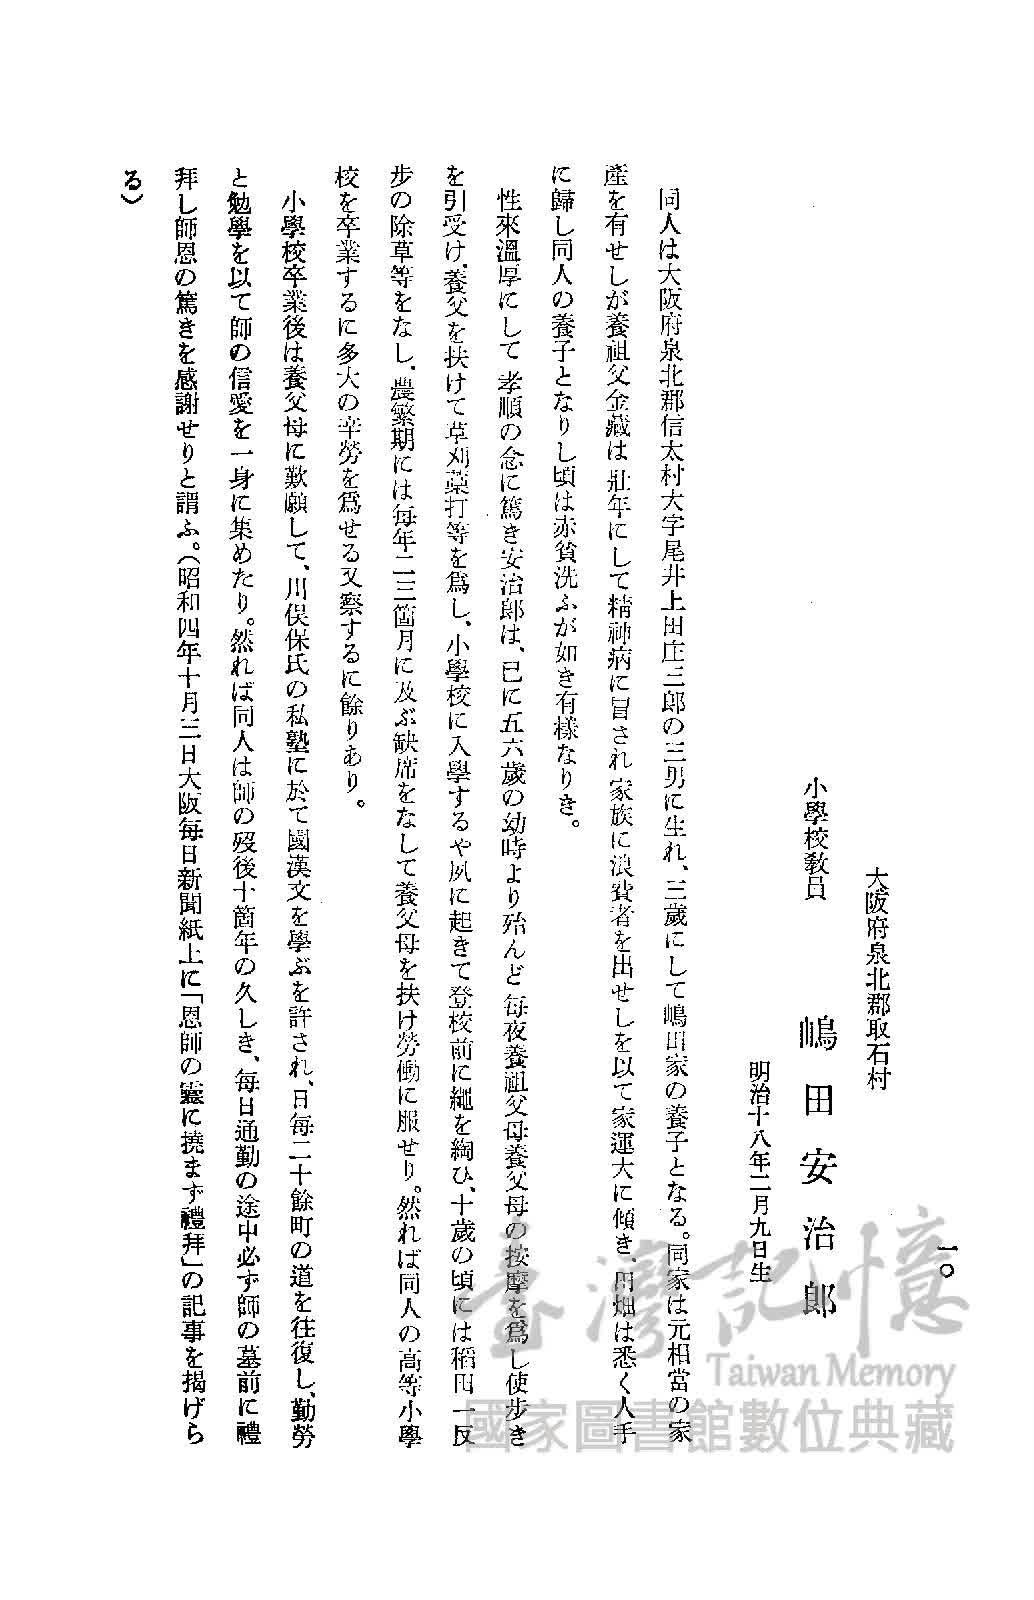 一〇
大阪府泉北郡取石村
小學校敎員　嶋田安治郎
明治十八年二月九日生
同人は大阪府泉北郡信太村大字尾井上田庄三郎の三男に生れ、三歲にして嶋田家の養子となる。同家は元相當の家
產を有せしが養祖父金藏は壯年にして精神病に冒され家族に浪費者を出せしを以て家運大に傾き、田畑は悉く人手
に歸し同人の養子となりし頃は赤貧洗ふが如き有樣なりき。
性來溫厚にして孝順の念に篤き安治郎は、已に五六歲の幼時より殆んど每夜養祖父母養父母の按摩を爲し使步き
を引受け、養父を扶けて草刈藁打等を爲し、小學校に入學するや夙に起きて登校前に繩を綯ひ、十歲の頃には稻田一反
步の除草等をなし、農繁期には每年二三箇月に及ぶ缺席をなして養父母を扶け勞働に服せり。然れば同人の高等小學
校を卒業するに多大の辛勞を爲せる又察するに餘りあり。
小學校卒業後は養父母に歎願して、川俣保氏の私塾に於て國漢文を學ぶを許され、日每二十餘町の道を往復し、勤勞
と勉學を以て師の信愛を一身に集めたり。然れば同人は師の歿後十箇年の久しき、每日通勤の途中必ず師の墓前に禮
拜し師恩の篤きを感謝せりと謂ふ。（昭和四年十月三日大阪每日新聞紙上に「恩師の靈に撓まず禮拜」の記事を揭げら
る）
臺灣記憶
Taiwan Memory
國家圖書館數位典藏